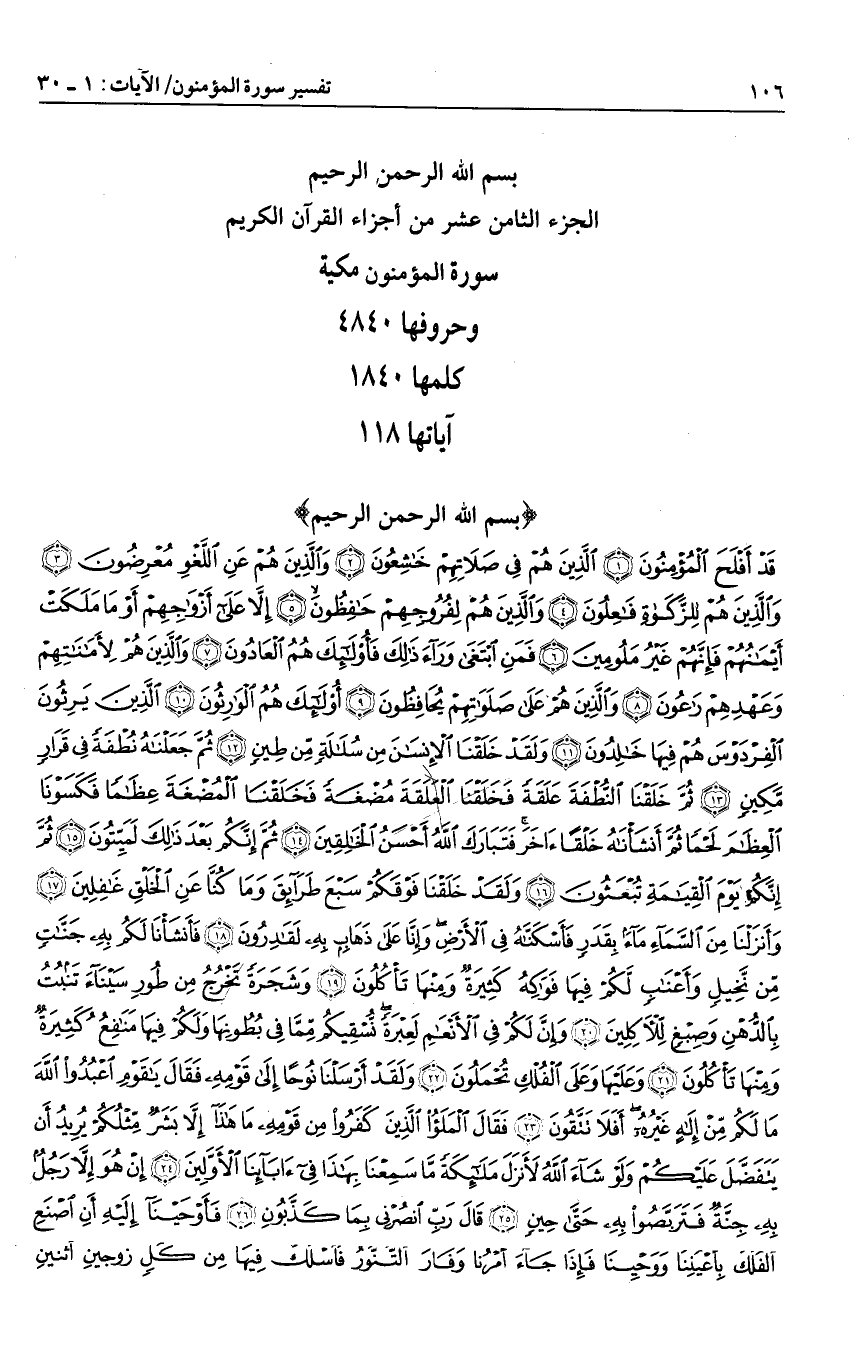 ١٠٦ تفسير سورة المؤمنون/ الآيات: ١ - ٣٠
بسم الله الرحمن الرحيم
الجزء الثامن عشر من أجزاء القرآن الكريم
سورة المؤمنون مكية
وحروفها ٤٨٤٠
كلمها ١٨٤٠
آياتها ١١٨
﴿بسم الله الرحمن الرحيم﴾
قَدْ أَفْلَحَ الْمُؤْمِنُونَ ﴿١﴾ الَّذِينَ هُمْ فِي صَلَاتِهِمْ خَٰشِعُونَ ﴿٢﴾ وَالَّذِينَ هُمْ عَنِ اللَّغْوِ مُعْرِضُونَ ﴿٣﴾
وَالَّذِينَ هُمْ لِلزَّكَوٰةِ فَٰعِلُونَ ﴿٤﴾ وَالَّذِينَ هُمْ لِفُرُوجِهِمْ حَٰفِظُونَ ﴿٥﴾ إِلَّا عَلَىٰ أَزْوَٰجِهِمْ أَوْ مَا مَلَكَتْ
أَيْمَٰنُهُمْ فَإِنَّهُمْ غَيْرُ مَلُومِينَ ﴿٦﴾ فَمَنِ ابْتَغَىٰ وَرَآءَ ذَٰلِكَ فَأُو۟لَٰٓئِكَ هُمُ الْعَادُونَ ﴿٧﴾ وَالَّذِينَ هُمْ لِأَمَٰنَٰتِهِمْ
وَعَهْدِهِمْ رَٰعُونَ ﴿٨﴾ وَالَّذِينَ هُمْ عَلَىٰ صَلَوَٰتِهِمْ يُحَافِظُونَ ﴿٩﴾ أُو۟لَٰٓئِكَ هُمُ الْوَٰرِثُونَ ﴿١٠﴾ الَّذِينَ يَرِثُونَ
الْفِرْدَوْسَ هُمْ فِيهَا خَٰلِدُونَ ﴿١١﴾ وَلَقَدْ خَلَقْنَا الْإِنسَٰنَ مِن سُلَٰلَةٍ مِّن طِينٍ ﴿١٢﴾ ثُمَّ جَعَلْنَٰهُ نُطْفَةً فِي قَرَارٍ
مَّكِينٍ ﴿١٣﴾ ثُمَّ خَلَقْنَا النُّطْفَةَ عَلَقَةً فَخَلَقْنَا الْعَلَقَةَ مُضْغَةً فَخَلَقْنَا الْمُضْغَةَ عِظَٰمًا فَكَسَوْنَا
الْعِظَٰمَ لَحْمًا ثُمَّ أَنشَأْنَٰهُ خَلْقًا ءَاخَرَ فَتَبَارَكَ اللَّهُ أَحْسَنُ الْخَٰلِقِينَ ﴿١٤﴾ ثُمَّ إِنَّكُم بَعْدَ ذَٰلِكَ لَمَيِّتُونَ ﴿١٥﴾ ثُمَّ
إِنَّكُمْ يَوْمَ الْقِيَٰمَةِ تُبْعَثُونَ ﴿١٦﴾ وَلَقَدْ خَلَقْنَا فَوْقَكُمْ سَبْعَ طَرَآئِقَ وَمَا كُنَّا عَنِ الْخَلْقِ غَٰفِلِينَ ﴿١٧﴾
وَأَنزَلْنَا مِنَ السَّمَآءِ مَآءً بِقَدَرٍ فَأَسْكَنَّٰهُ فِي الْأَرْضِ وَإِنَّا عَلَىٰ ذَهَابٍ بِهِ لَقَٰدِرُونَ ﴿١٨﴾ فَأَنشَأْنَا لَكُم بِهِ جَنَّٰتٍ
مِّن نَّخِيلٍ وَأَعْنَٰبٍ لَّكُمْ فِيهَا فَوَٰكِهُ كَثِيرَةٌ وَمِنْهَا تَأْكُلُونَ ﴿١٩﴾ وَشَجَرَةً تَخْرُجُ مِن طُورِ سَيْنَآءَ تَنۢبُتُ
بِالدُّهْنِ وَصِبْغٍ لِّلْآكِلِينَ ﴿٢٠﴾ وَإِنَّ لَكُمْ فِي الْأَنْعَٰمِ لَعِبْرَةً نُّسْقِيكُم مِّمَّا فِي بُطُونِهَا وَلَكُمْ فِيهَا مَنَٰفِعُ كَثِيرَةٌ
وَمِنْهَا تَأْكُلُونَ ﴿٢١﴾ وَعَلَيْهَا وَعَلَى الْفُلْكِ تُحْمَلُونَ ﴿٢٢﴾ وَلَقَدْ أَرْسَلْنَا نُوحًا إِلَىٰ قَوْمِهِ فَقَالَ يَٰقَوْمِ اعْبُدُوا۟ اللَّهَ
مَا لَكُم مِّنْ إِلَٰهٍ غَيْرُهُ أَفَلَا تَتَّقُونَ ﴿٢٣﴾ فَقَالَ الْمَلَؤُا۟ الَّذِينَ كَفَرُوا۟ مِن قَوْمِهِ مَا هَٰذَآ إِلَّا بَشَرٌ مِّثْلُكُمْ يُرِيدُ أَن
يَتَفَضَّلَ عَلَيْكُمْ وَلَوْ شَآءَ اللَّهُ لَأَنزَلَ مَلَٰٓئِكَةً مَّا سَمِعْنَا بِهَٰذَا فِيٓ ءَابَآئِنَا الْأَوَّلِينَ ﴿٢٤﴾ إِنْ هُوَ إِلَّا رَجُلٌۢ
بِهِ جِنَّةٌ فَتَرَبَّصُوا۟ بِهِ حَتَّىٰ حِينٍ ﴿٢٥﴾ قَالَ رَبِّ انصُرْنِي بِمَا كَذَّبُونِ ﴿٢٦﴾ فَأَوْحَيْنَآ إِلَيْهِ أَنِ اصْنَعِ
الْفُلْكَ بِأَعْيُنِنَا وَوَحْيِنَا فَإِذَا جَآءَ أَمْرُنَا وَفَارَ التَّنُّورُ فَاسْلُكْ فِيهَا مِن كُلٍّ زَوْجَيْنِ اثْنَيْنِ